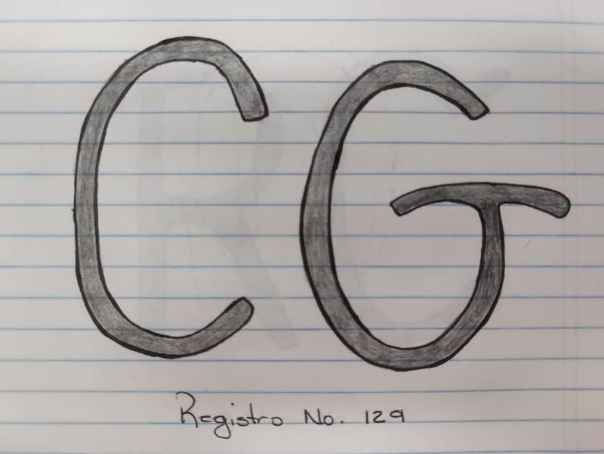 CG
Registro No. 129